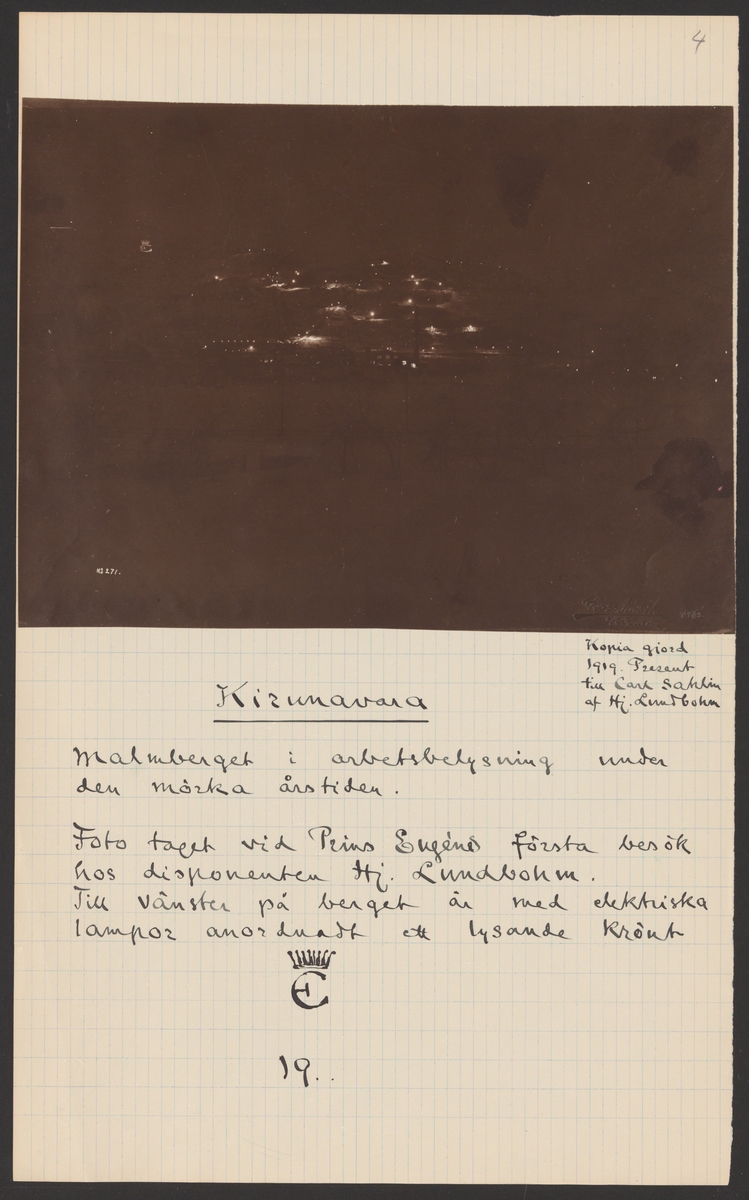 4
HJ 271.
Kopia gjord
1919. Present
till Carl Sahlin
af Hj. Lundbohm
Kirunavara
Malmberget i arbetsbelysning under
den mörka årstiden.
Foto taget vid Prins Eugéns första besök
hos disponenten Hj. Lundbohm.
Till vänster på berget är med elektriska
lampor anordnadt ett lysande krönt
E
19..